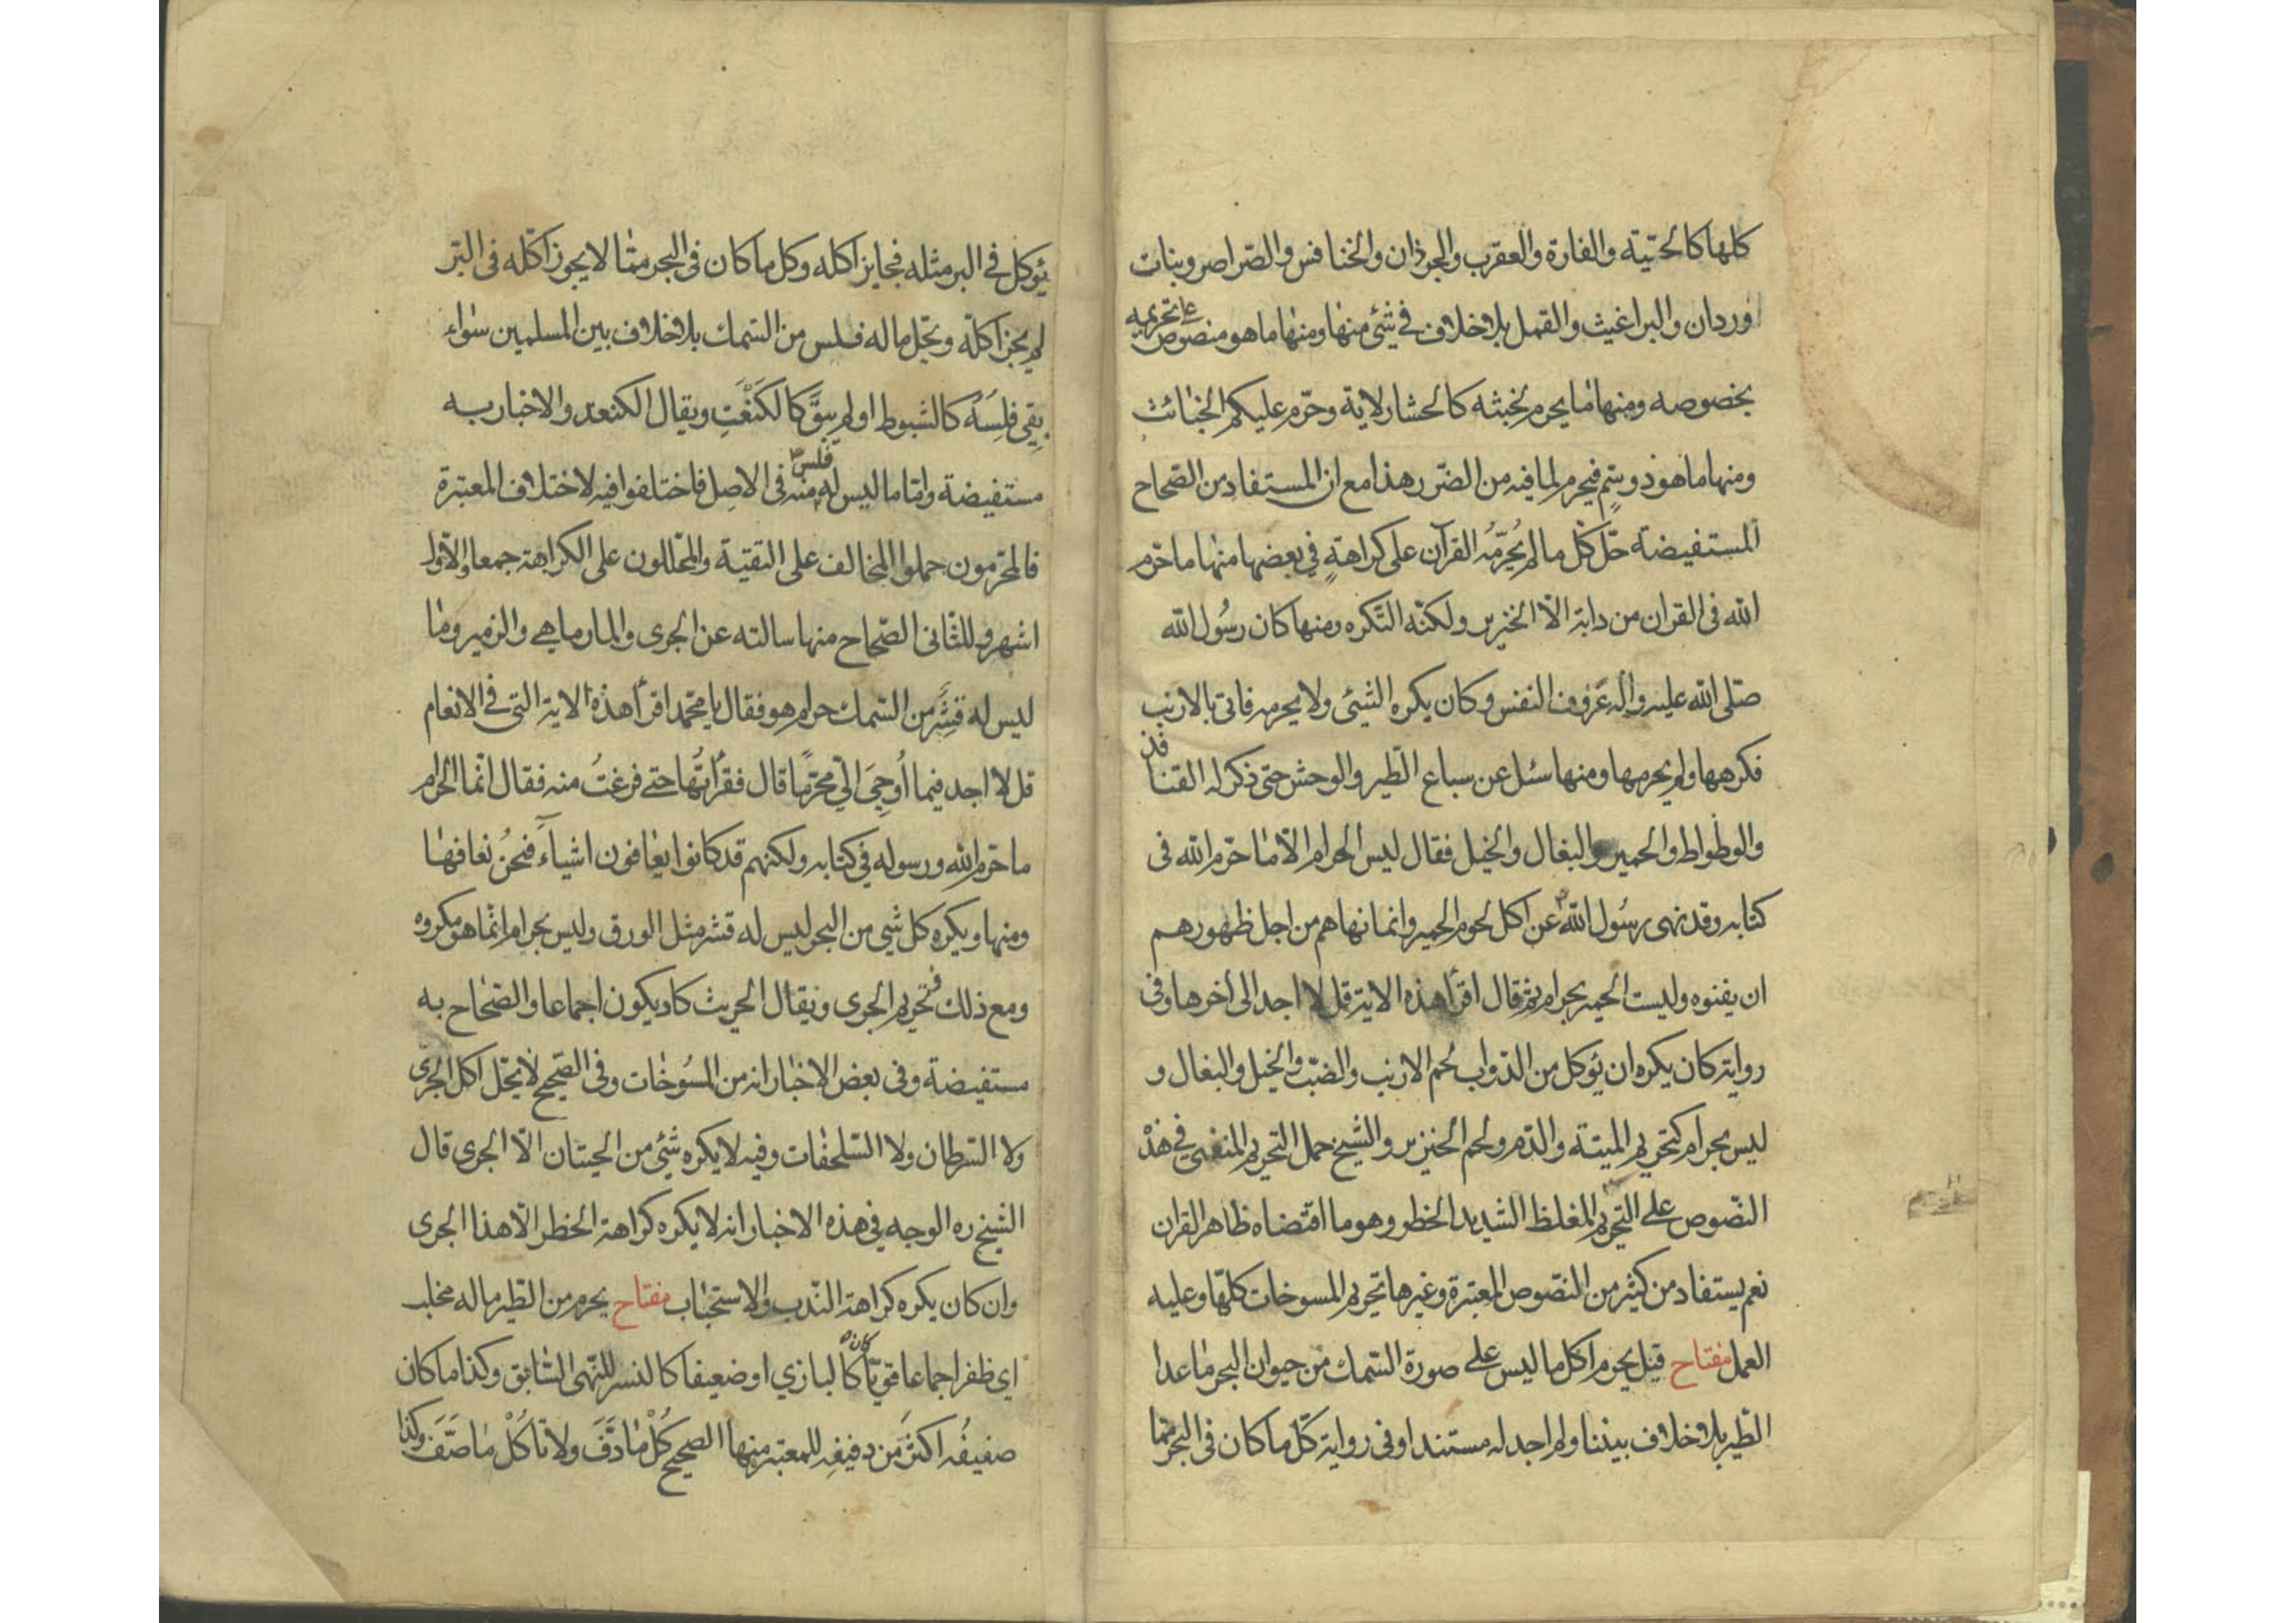 كلها كالحيّة والفارة والعقرب والجرذان والخنافس والصراصر وبنات
وردان والبراغيث والقمل بلا خلاف في شئ منها ومنها ما هو منصوص على تحريمه
بخصوصه ومنها ما يحرم لخبثه كالحشار لاية وحرّم عليكم الخبائث
ومنها ما هو ذو سمّ فيحرم لما فيه من الضّرر هذا مع ان المستفاد من الصّحاح
المستفيضة حلّ كلّ ما لم يُحرّمه القرآن على كراهةٍ في بعضها منها ما حرّم
الله فى القران من دابة الّا الخنزير ولكنّه التكره ومنها كان رسُول الله
صلّى الله عليه واله عَزوف النفس وكان يكره الشيئ ولا يحرمه فاتى بالارنب
فكرهها ولم يحرمها ومنها سئل عن سباع الطّير والوحش حتى ذكر له القنافذ
والوطواط والحمير والبغال والخيل فقال ليس الحرام الّا ما حرّم الله فى
كتابه وقد نهى رسُول الله ص عن اكل لحوم الحمير وانما نهاهم من اجل ظهورهم
ان يفنوه وليست الحمير بحرام ثم قال اقرأ هذه الاية قل لا اجد الى اخرها وفى
رواية كان يكره ان يؤكل من الدّواب لحم الارنب والضبّ والخيل والبغال و
ليس بحرام كتحريم الميتة والدّم ولحم الخنزير والشيخ حمل التحريم المنفى في هذه
النصّوص على التحريم المغلظ الشديد الخطر وهو ما اقتضاه ظاهر القران
نعم يستفاد من كثير من النصّوص المعتبرة وغيرها تحريم المسوخات كلّها وعليه
العمل مفتاح قيل يحرم اكل ما ليس على صورة السّمك من حيوان البحر ما عدا
الطّير بلا خلاف بيننا ولم اجد له مستندا وفى رواية كلّ ما كان فى البحر ممّا
يؤكل في البر مثله فجايز اكله وكل ما كان فى البحر ممّا لا يجوز اكله فى البّر
لم يجز اكلّه ويحّل ما له فلس من السّمك بلا خلاف بين المسلمين سواء
بقى فلِسَهُ كالشبوط او لم يبقَ كالكَنْعَتِ ويقال الكنعد والاخبار به
مستفيضة وامّا ما ليس له فلس منه فى الاصِل فاختلفوا فيه لاختلاف المعتبرة
فالمحرّمون حملوا المخالف على التقيّة والمحللون على الكراهة جمعا والاوّل
اشهر وللثّانى الصّحاح منها سالته عن الجرى والمارماهى والزمير وما
ليس له قشَر من السّمك حرام هو فقال يا محمّد اقرأ هذه الاية التى فى الانعام
قل لا اجد فيما اُوحِىَ الىّ محرّمًا قال فقرأتُها حتى فرغتُ منه فقال انّما الحرام
ما حرّم الله ورسوله في كتابه ولكنهم قد كانوا يعافون اشياءَ فنحنُ نعافها
ومنها ويكره كل شي من البحر ليس له قشر مثل الورق وليس بحرام انّما هو مكروه
ومع ذلك فتحريم الجرى ويقال الجريث كاد يكون اجماعا والصّحاح به
مستفيضة وفى بعض الاخبار انه من المسُوخات وفى الصّحيح لا يحّل اكل الجرّى
ولا السّرطان ولا السّلحفات وفيه لا يكره شئ من الحيتان الّا الجرى قال
الشيخ ره الوجه في هذه الاخبار انه لا يكره كراهة الحظر الّا هذا الجرى
وان كان يكره كراهة النّدب والاستحباب مفتاح يحرم من الطّير ما له مخلب
اى ظفر اجماعا قويّا كان كالبازي او ضعيفا كالنسر للنّهى السّابق وكذا ما كان
صفيفُه اكثر من دفيفِه للمعتبر منها الصحيح كُلْ ما دَفَّ ولا تأكُلْ ما صَفَّ وكذا